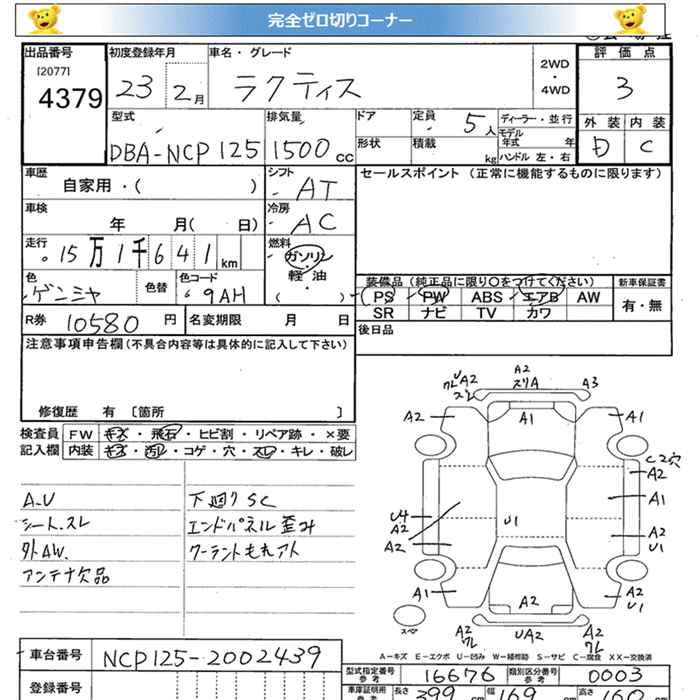 完全ゼロ切りコーナー
出品番号 初度登録年月 車名・グレード 評価点
[2077] 4379 23 2月 ラクティス 2WD・4WD 3
型式 排気量 ドア 定員 5人 ディーラー・並行 外装 内装
DBA-NCP125 1500cc 形状 積載 kg モデル年式 年 ハンドル 左・右 D C
車歴 シフト セールスポイント (正常に機能するものに限ります)
自家用・( ) AT
車検 冷房
年 月( 日) AC
走行 15万1千641km 燃料 ガソリン・軽油 ( )
色 色替 色コード 装備品 (純正品に限り○をつけてください) 新車保証書
ゲンミヤ 9AH PS PW ABS エアB AW 有・無
SR ナビ TV カワ
R券 10580円 名変期限 月 日 後日品
注意事項申告欄(不具合内容等は具体的に記入して下さい)
修復歴 有 [箇所 ]
検査員 FW キズ・飛石・ヒビ割・リペア跡・×要
記入欄 内装 キズ・汚レ・コゲ・穴・スレ・キレ・破レ
A.U 下廻りSC
シートスレ エンドパネル歪み
外AW. クーラントもれアト
アンテナ欠品
UA2 A2 A3
ワレ スリA
スレ
A2 A1 A1
C2穴
A2
U4 A1
A2 U1
A2 A2
U1
A1 A2 A2
U1
スペア A2 UA2 A2
ワレ ワレ
A-キズ E-エクボ U-凹み W-補修跡 S-サビ C-腐食 XX-交換済
車台番号 NCP125-2002439
型式指定番号 参考 16676 類別区分番号 参考 0003
登録番号 車庫証明用 長さ 399 cm 幅 169 cm 高さ 160 cm